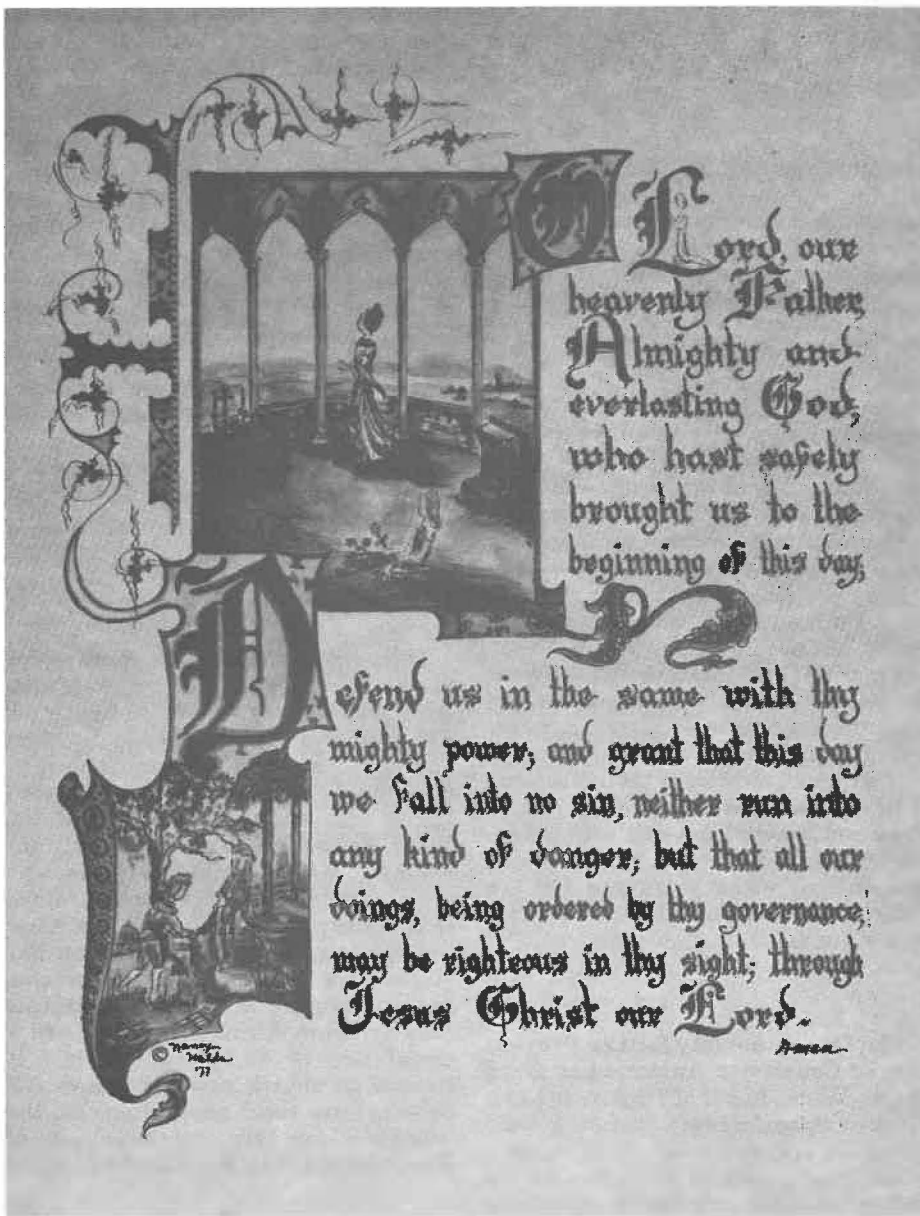 O Lord, our
heavenly Father,
Almighty and
everlasting God,
who hast safely
brought us to the
beginning of this day;
Defend us in the same with thy
mighty power; and grant that this day
we fall into no sin, neither run into
any kind of danger; but that all our
doings, being ordered by thy governance,
may be righteous in thy sight; through
Jesus Christ our Lord.
Amen
© Nancy
'77